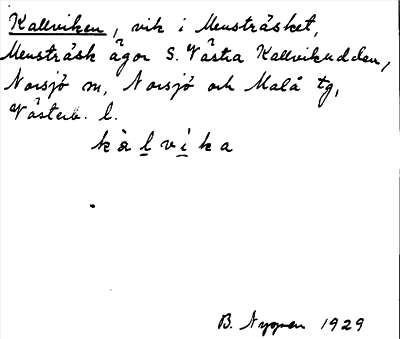 Kallviken, vik i Mensträsket,
Mensträsk ägor S. Västra Kallvikudden,
Norsjö sn, Norsjö och Malå tg,
Västerb. l.
kàlvíka
B. Nygren 1929